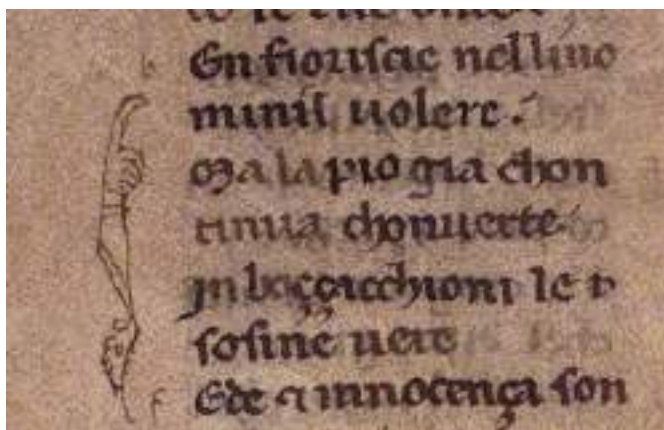 En fiorisce nelliuo
minil uolere.
ma la piogia chon
tinua chonuerte
jn boççacchioni le
sosine uere
Ede et innocença son